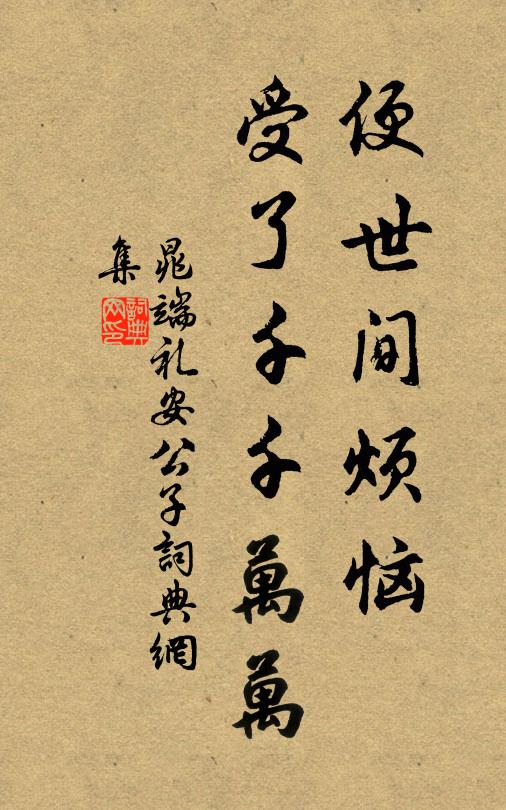 便世间烦恼
受了千千萬萬
晁端礼安公子詞典網
集
詞典
网印